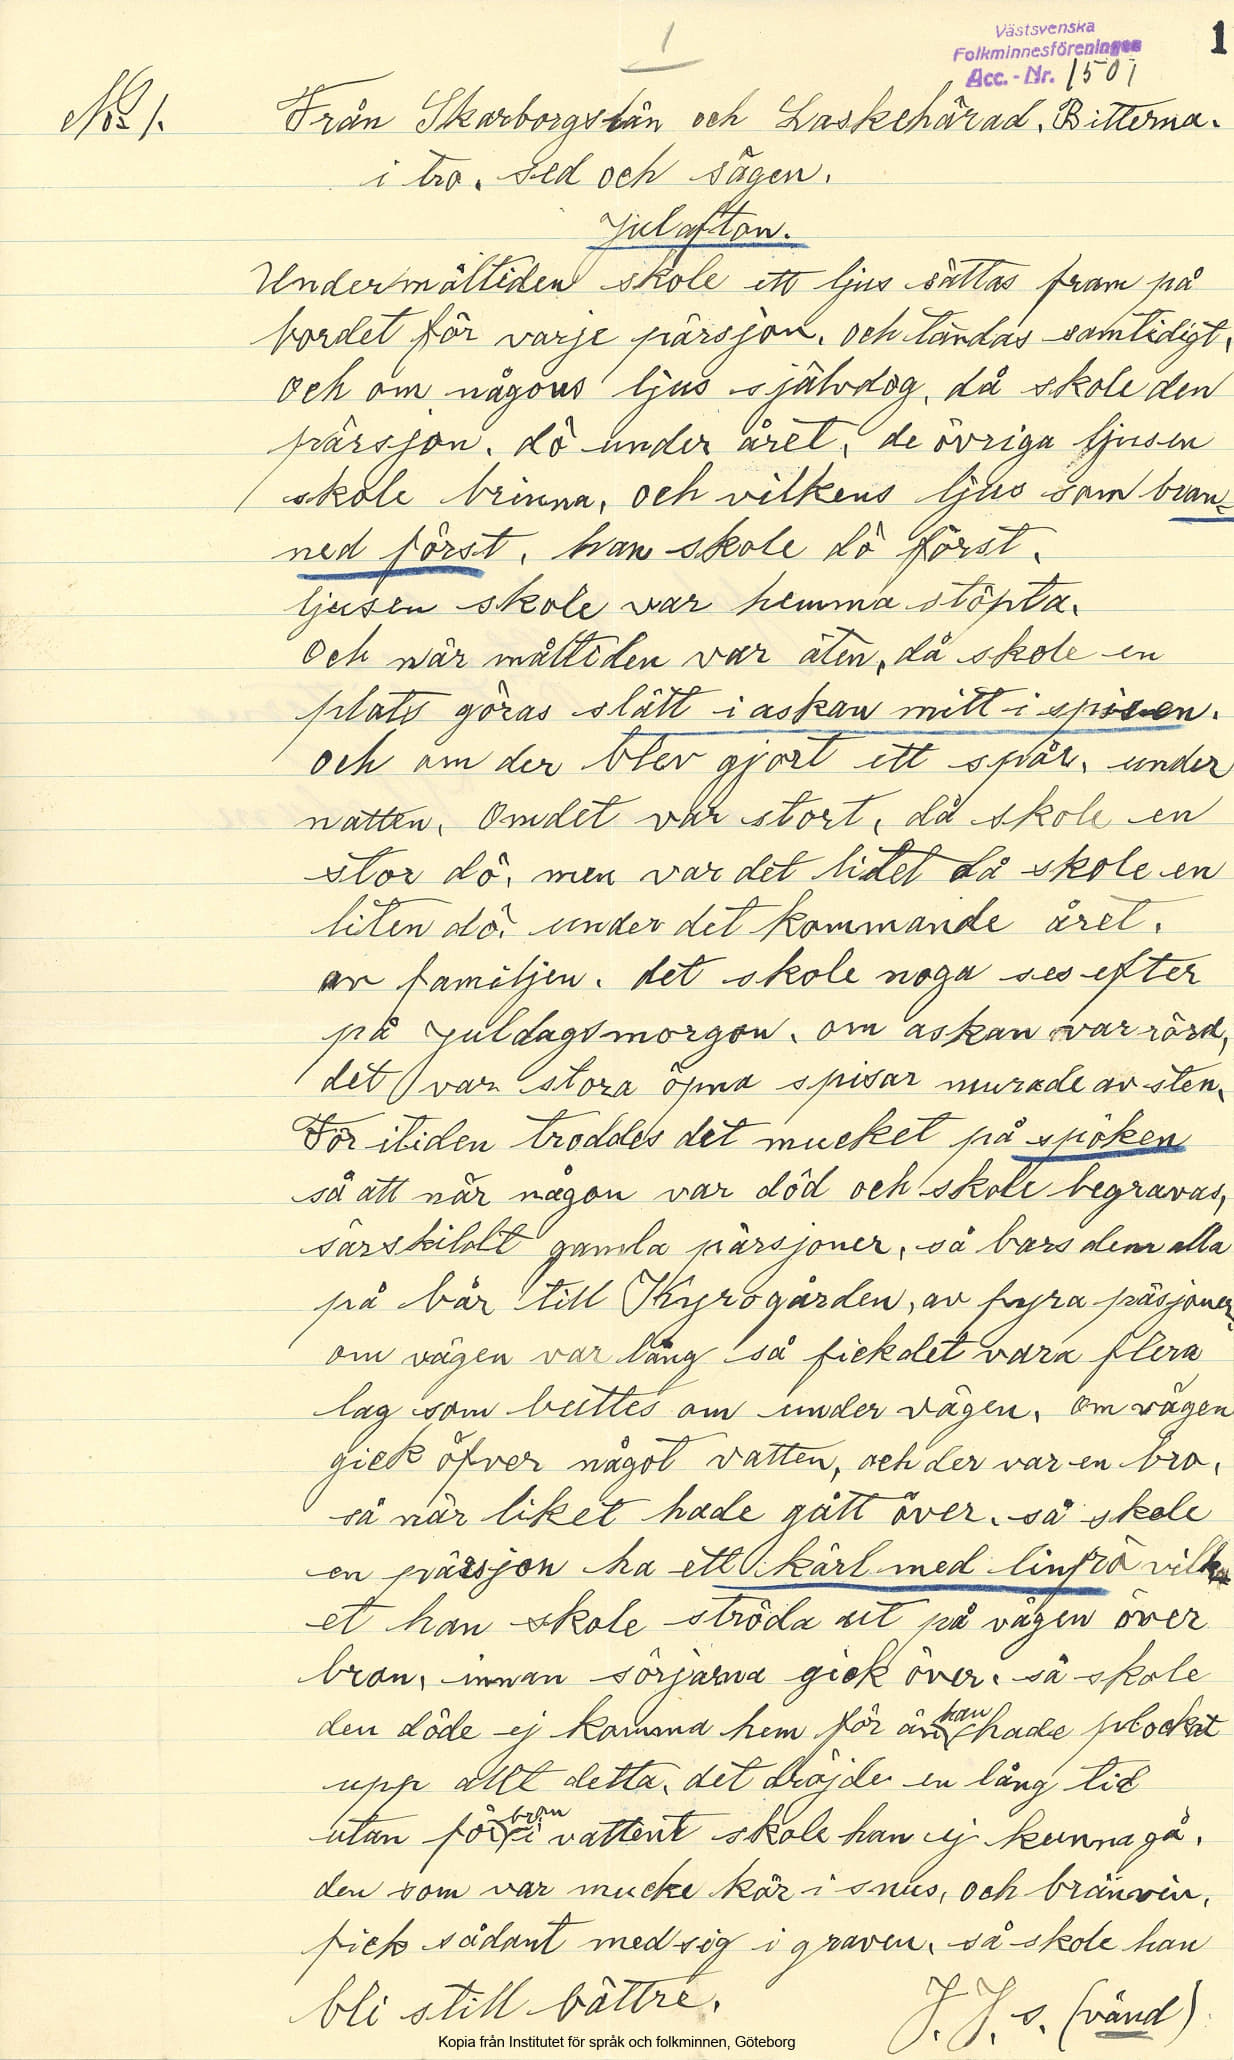 1
Västsvenska
Folkminnesföreningen
Acc.-Nr. 1501
1
No 1. Från Skarborgslän och Laskehärad. Bitterna.
i tro. sed och sägen.
Julafton.
Under måltiden skole ett ljus sättas fram på
bordet för varje pärsjon. och tändas samtidigt.
och om någons ljus självdog. då skole den
pärsjon. dö under året. de övriga ljusen
skole brinna. och vilkens ljus som bran
ned först. han skole dö först.
ljusen skole var hemma stöpta.
Och när måltiden var äten, då skole en
plats göras slätt i askan mitt i spisen.
och om der blev gjort ett spår. under
natten. Omdet var stort, då skole en
stor dö. men var det litet då skole en
liten dö. under det kommande året.
av familjen. det skole noga ses efter
på Juldagsmorgon. om askan var rörd,
det var stora öpna spisar murade av sten.
För itiden troddes det mucket på spöken
så att när någon var död och skole begravas,
särskildt gamla pärsjoner. så bars dem alla
på bår till Kyrogården, av fyra päsjoner.
om vägen var lång så fick det vara flera
lag som buttes om under vägen. Om vägen
gick öfver något vatten, och der var en bro.
så när liket hade gått över. så skole
en pärsjon ha ett kärl med linfrö vilk
et han skole ströda ut på vägen över
bron. innan sörjarna gick över. så skole
den döde ej komma hem för än han hade plockat
upp allt detta. det dröjde en lång tid
utan för bron i vattent skole han ej kunna gå.
den som var mucke kär i snus, och bränvin.
fick sådant med sig i graven. så skole han
bli still bättre.
J. J. s. (vänd)
Kopia från Institutet för språk och folkminnen, Göteborg